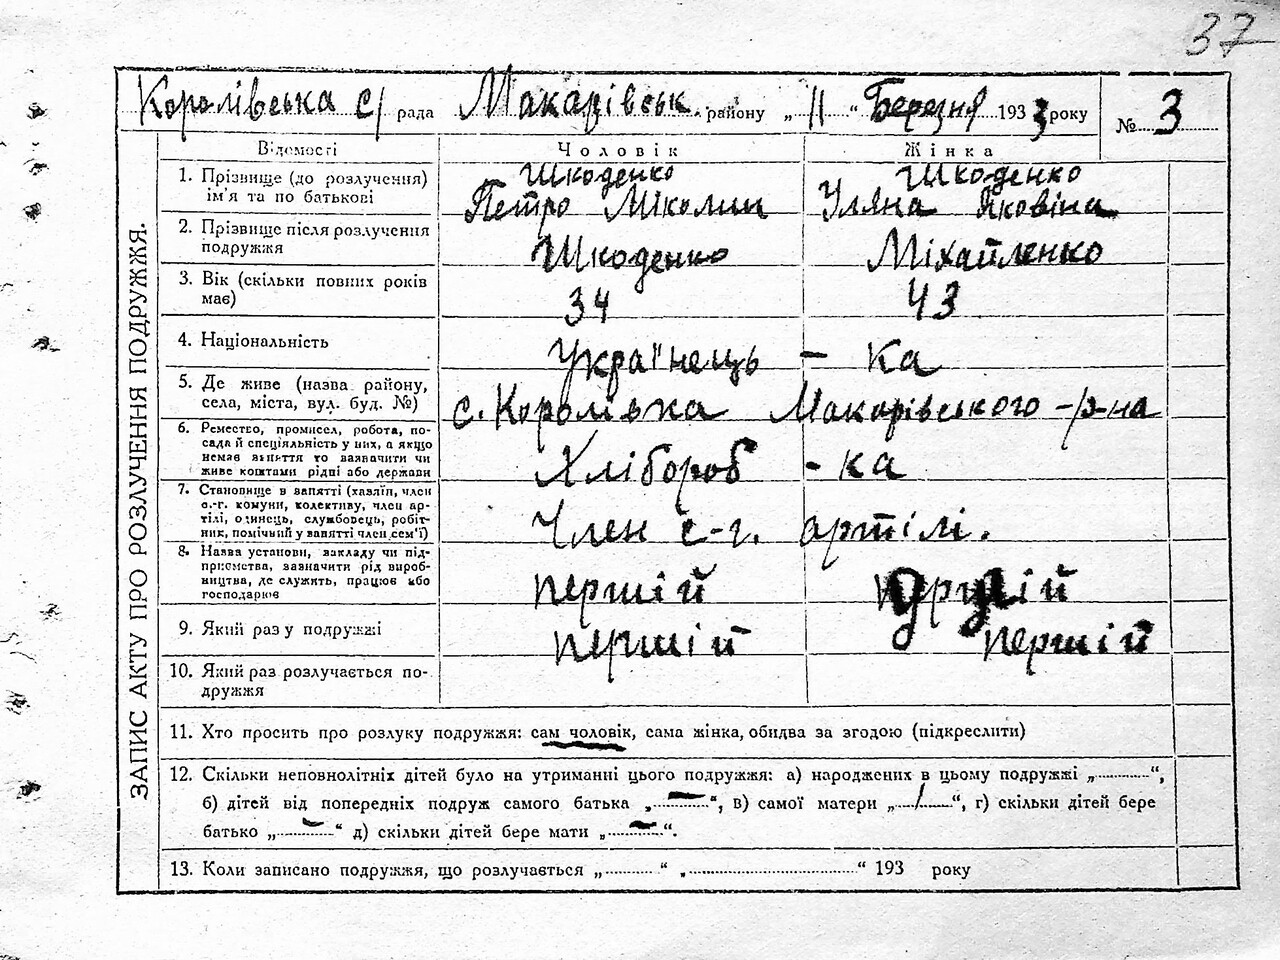 37
Королівська с/ рада Макарівськ. району „ 11 “ Березня 1933 року № 3
Відомості Чоловік Жінка
ЗАПИС АКТУ ПРО РОЗЛУЧЕННЯ ПОДРУЖЖЯ.
1. Прізвище (до розлучення) Шкоденко Шкоденко
ім'я та по батькові Петро Міколаш Уляна Яковіна
2. Прізвище після розлучення
подружжя Шкоденко Міхайленко
3. Вік (скільки повних років
має) 34 43
4. Національність Українець – ка
5. Де живе (назва району,
села, міста, вул. буд. №) с. Королівка Макарівського -р-на
6. Ремество, промисел, робота, по-
сада й спеціяльність у них, а якщо
немає заняття то зазначити чи
живе коштами рідні або держави Хлібороб - ка
7. Становище в занятті (хазяїн, член
с.-г. комуни, колективу, член ар-
тілі, одинець, службовець, робіт-
ник, помічний у занятті член сем'ї) Член с-г. артілі.
8. Назва установи, закладу чи під-
приємства, зазначити рід вироб-
ництва, де служить, працює або
господарює першій другій
9. Який раз у подружжі першій першій
10. Який раз розлучається по-
дружжя
11. Хто просить про розлуку подружжя: сам чоловік, сама жінка, обидва за згодою (підкреслити)
12. Скільки неповнолітніх дітей було на утриманні цього подружжя: а) народжених в цьому подружжі „ “,
б) дітей від попередніх подруж самого батька „ — “, в) самої матери „ / “, г) скільки дітей бере
батько „ — “ д) скільки дітей бере мати „ — “.
13. Коли записано подружжя, що розлучається „ “ „ “ 193 року